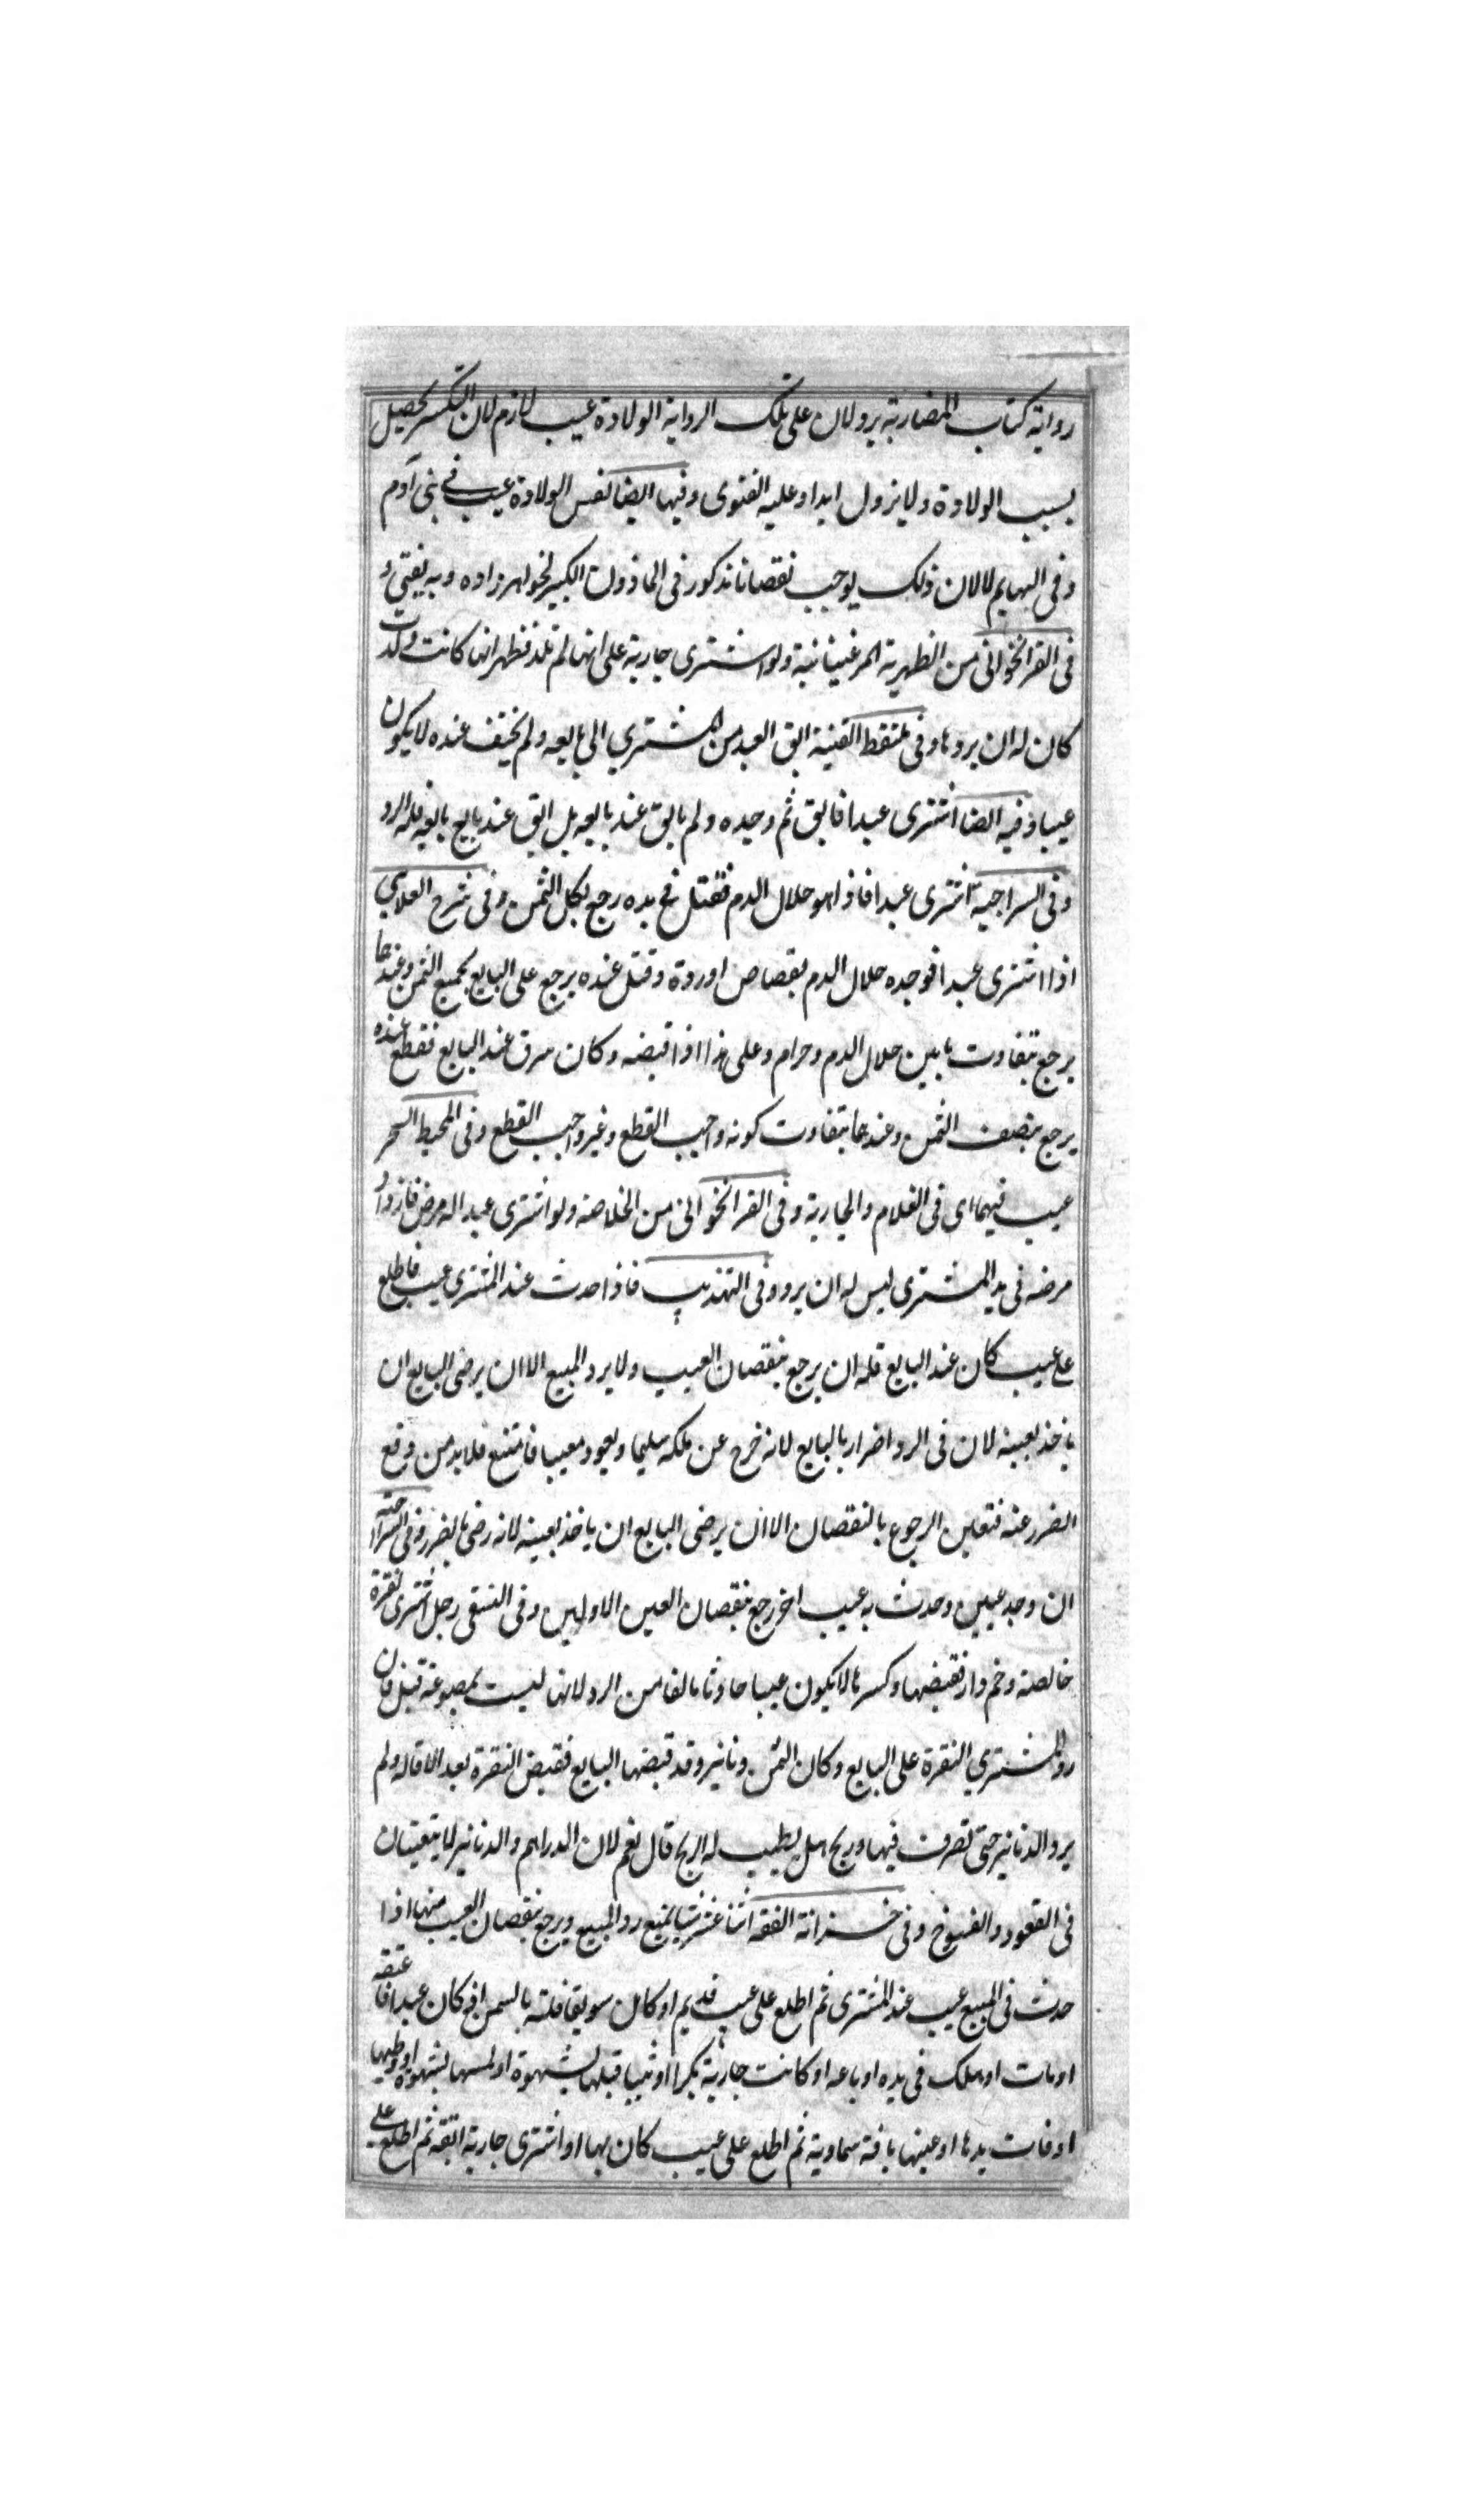 رواية كتاب المضاربة يرد لان على تلك الرواية الولادة عيب لازم لان التكسر يحصل
بسبب الولادة ولا يزول ابدا وعليه الفتوى وفيها ايضا نفس الولادة عيب في بنى آدم
وفى البهايم لا لان ذلك يوجب نقصانا مذكور فى الماذون الكبير لخواهر زاده وبه يفتى و
فى القراخوانى من الظهيرية المرغينانية ولو اشترى جارية على انها لم تلد فظهر انها كانت ولدت
كان له ان يردها وفى ملتقط القنية ابق العبد من المشتري الى بايعه ولم يختف عنده لا يكون
عيبا وفيه ايضا اشترى عبدا فابق ثم وجده ولم يابق عند بايعه بل ابق عند بايع بايعه فله الرد
وفى السراجية اشترى عبدا فاذا هو حلال الدم فقتل في يده رجع بكل الثمن وفى شرح العلاسي
اذا اشترى عبدا فوجده حلال الدم بقصاص او ردة وقتل عنده يرجع على البايع بجميع الثمن وعندهما
يرجع بتفاوت ما بين حلال الدم وحرام وعلى هذا اذا قبضه وكان سرق عند البايع فقطع عنده
يرجع بنصف الثمن وعندهما بتفاوت كونه واجب القطع وغير واجب القطع وفى المحيط السحر
عيب فيهما اى فى الغلام والجارية وفى القراخوانى من الخلاصة ولو اشترى عبدا له مرض فازداد
مرضه فى يد المشترى ليس له ان يرد وفى التهذيب فاذا حدث عند المشترى عيب فاطلع
على عيب كان عند البايع فله ان يرجع بنقصان العيب ولا يرد المبيع الا ان يرضى البايع ان
ياخذ بعينه لان فى الرد اضرار بالبايع لانه خرج عن ملكه سليما ويعود معيبا فامتنع فلا بد من دفع
الضرر عنه فتعين الرجوع بالنقصان الا ان يرضى البايع ان ياخذ بعينه لانه رضى بالضرر وفى السراجيه
ان وجد عيبين وحدث به عيب اخر رجع بنقصان العين الاولين وفى النسفى رجل اشترى نقرة
خالصة وخم دار فقبضها وكسرها لا يكون عيبا حادثا مالفا من الرد لانها ليست بمصبوغة قيل فان
رد المشتري النقرة على البايع وكان الثمن دنانير وقد قبضها البايع فقبض النقرة بعد الاقالة ولم
يرد الدنانير حتى تصرف فيها وربح هل يطيب له الربح قال نعم لان الدراهم والدنانير لا يتعينان
فى العقود والفسوخ وفى خزانة الفقه اثنا عشر شيا يمنع رد المبيع ويرجع بنقصان العيب منها اذا
حدث فى المبيع عيب عند المشترى ثم اطلع على عيب قديم او كان سويقا فلته بالسمن او كان عبدا فاعتقه
او مات او هلك فى يده او باعه او كانت جارية بكرا او ثيبا قبلها بشهوة او لمسها بشهوة او وطيها
او فات يدها او عينها بافة سماوية ثم اطلع على عيب كان بها او اشترى جارية ابقة ثم اطلع على